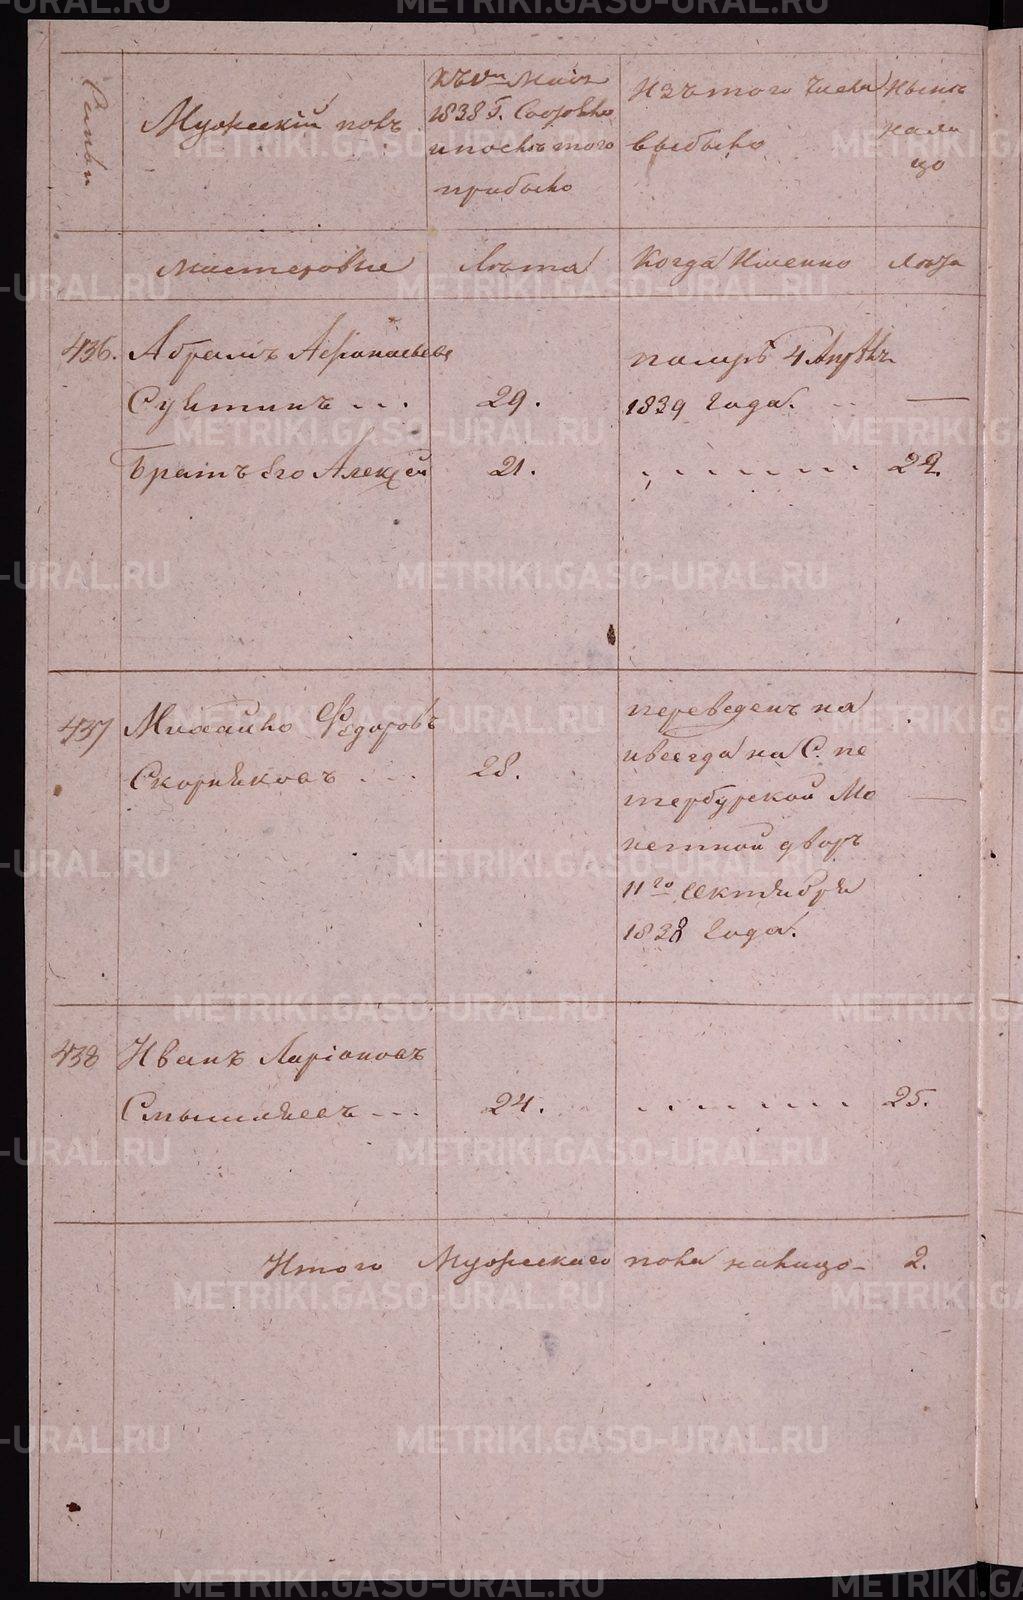 Мужескiй полъ
1838 Г. Состояло
и послѣ того
прибыло
Изъ того числа
выбыло
Нынѣ
нали
цо
мастеровые
Лѣта
Когда Именно
Лѣта
436.
Абрамъ Афонасьевъ
29.
помръ 4 Апрѣля
1839 Года.
Братъ Его Алексѣй
21.
22.
437
Михайло Федоровъ
Скорняковъ
28.
переведенъ на
всегда на С. пе
тербурской Мо
нетной дворъ
11го Октября
1838 Года.
438
Иванъ Ларiоновъ
Смышляевъ
24.
25.
Итого Мужескаго пола налицо 2.
METRIKI.GASO-URAL.RU